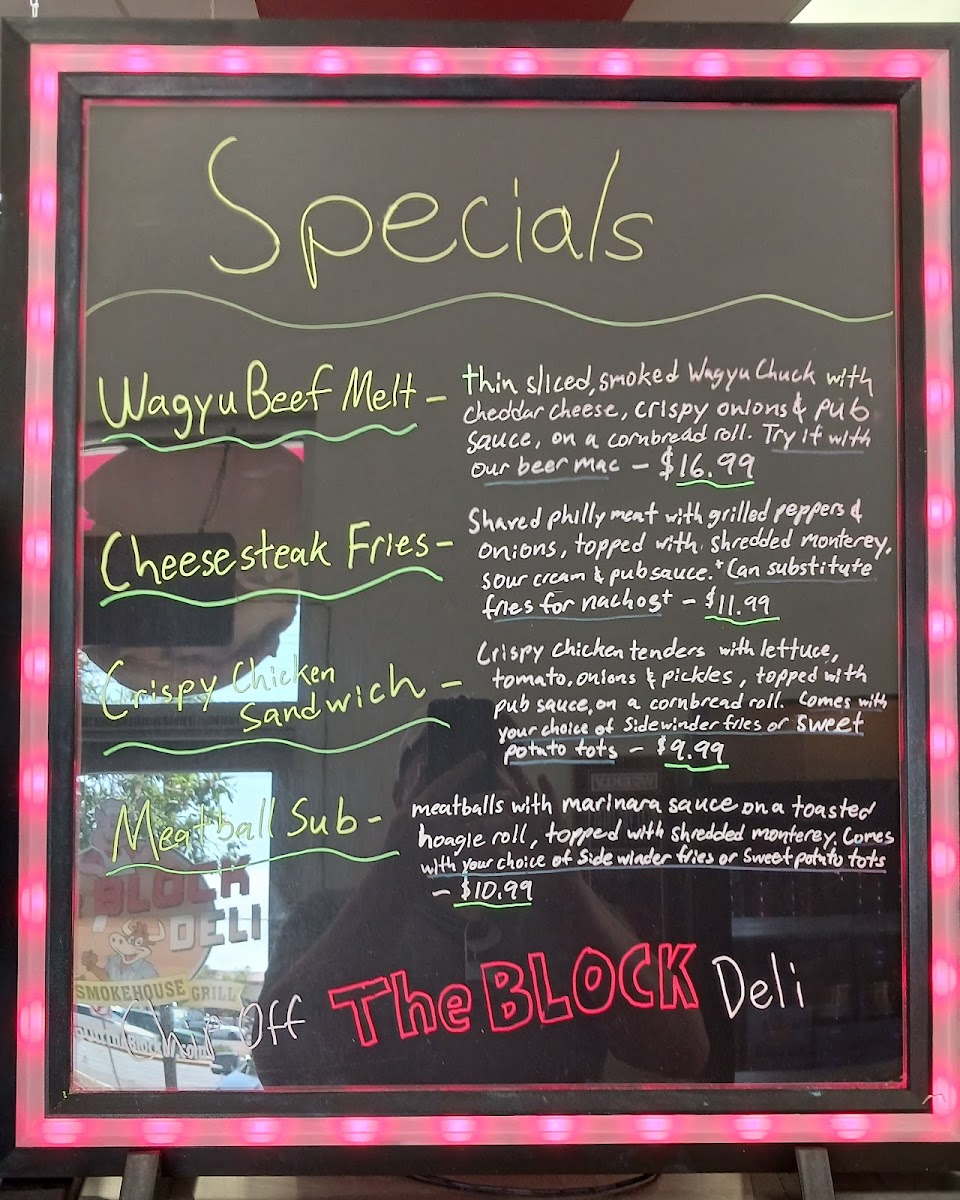 Specials
Wagyu Beef Melt -
thin sliced, smoked Wagyu Chuck with
cheddar cheese, crispy onions & pub
sauce, on a cornbread roll. Try it with
our beer mac - $16.99
Cheesesteak Fries -
Shaved philly meat with grilled peppers &
onions, topped with shredded monterey,
sour cream & pub sauce. *Can substitute
fries for nachos* - $11.99
Crispy Chicken
Sandwich -
Crispy chicken tenders with lettuce,
tomato, onions & pickles, topped with
pub sauce, on a cornbread roll. Comes with
your choice of Sidewinder fries or sweet
potato tots - $9.99
Meatball Sub -
meatballs with marinara sauce on a toasted
hoagie roll, topped with shredded monterey. Comes
with your choice of Side winder fries or Sweet potato tots
- $10.99
BLOCK
DELI
SMOKEHOUSE GRILL
Off The BLOCK Deli